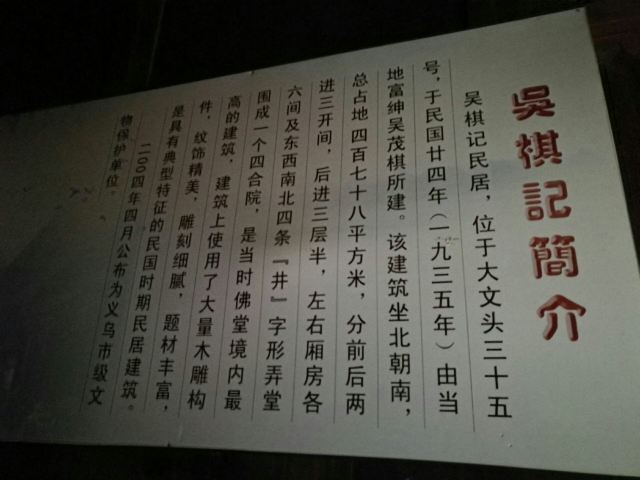 吳棋記簡介
吴棋记民居，位于大文头三十五
号，于民国廿四年（一九三五年）由当
地富绅吴茂棋所建。该建筑坐北朝南，
总占地四百七十八平方米，分前后两
进三开间，后进三层半，左右厢房各
六间及东西南北四条『井』字形弄堂
围成一个四合院，是当时佛堂境内最
高的建筑，建筑上使用了大量木雕构
件，纹饰精美，雕刻细腻，题材丰富，
是具有典型特征的民国时期民居建筑。
二00四年四月公布为义乌市级文
物保护单位。